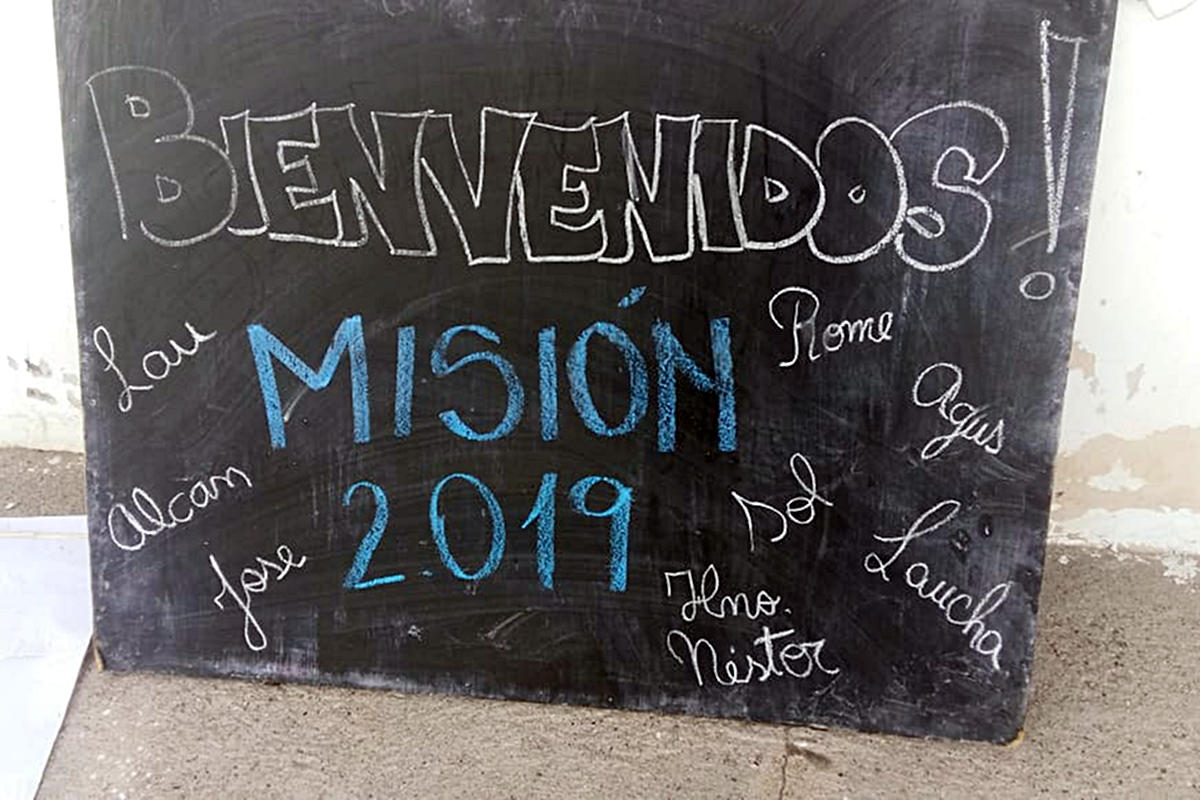 BIENVENIDOS!
Lau
MISIÓN
Rome
Agus
Alcan
2019
Sol
Laucha
Jose
Hno.
Néstor